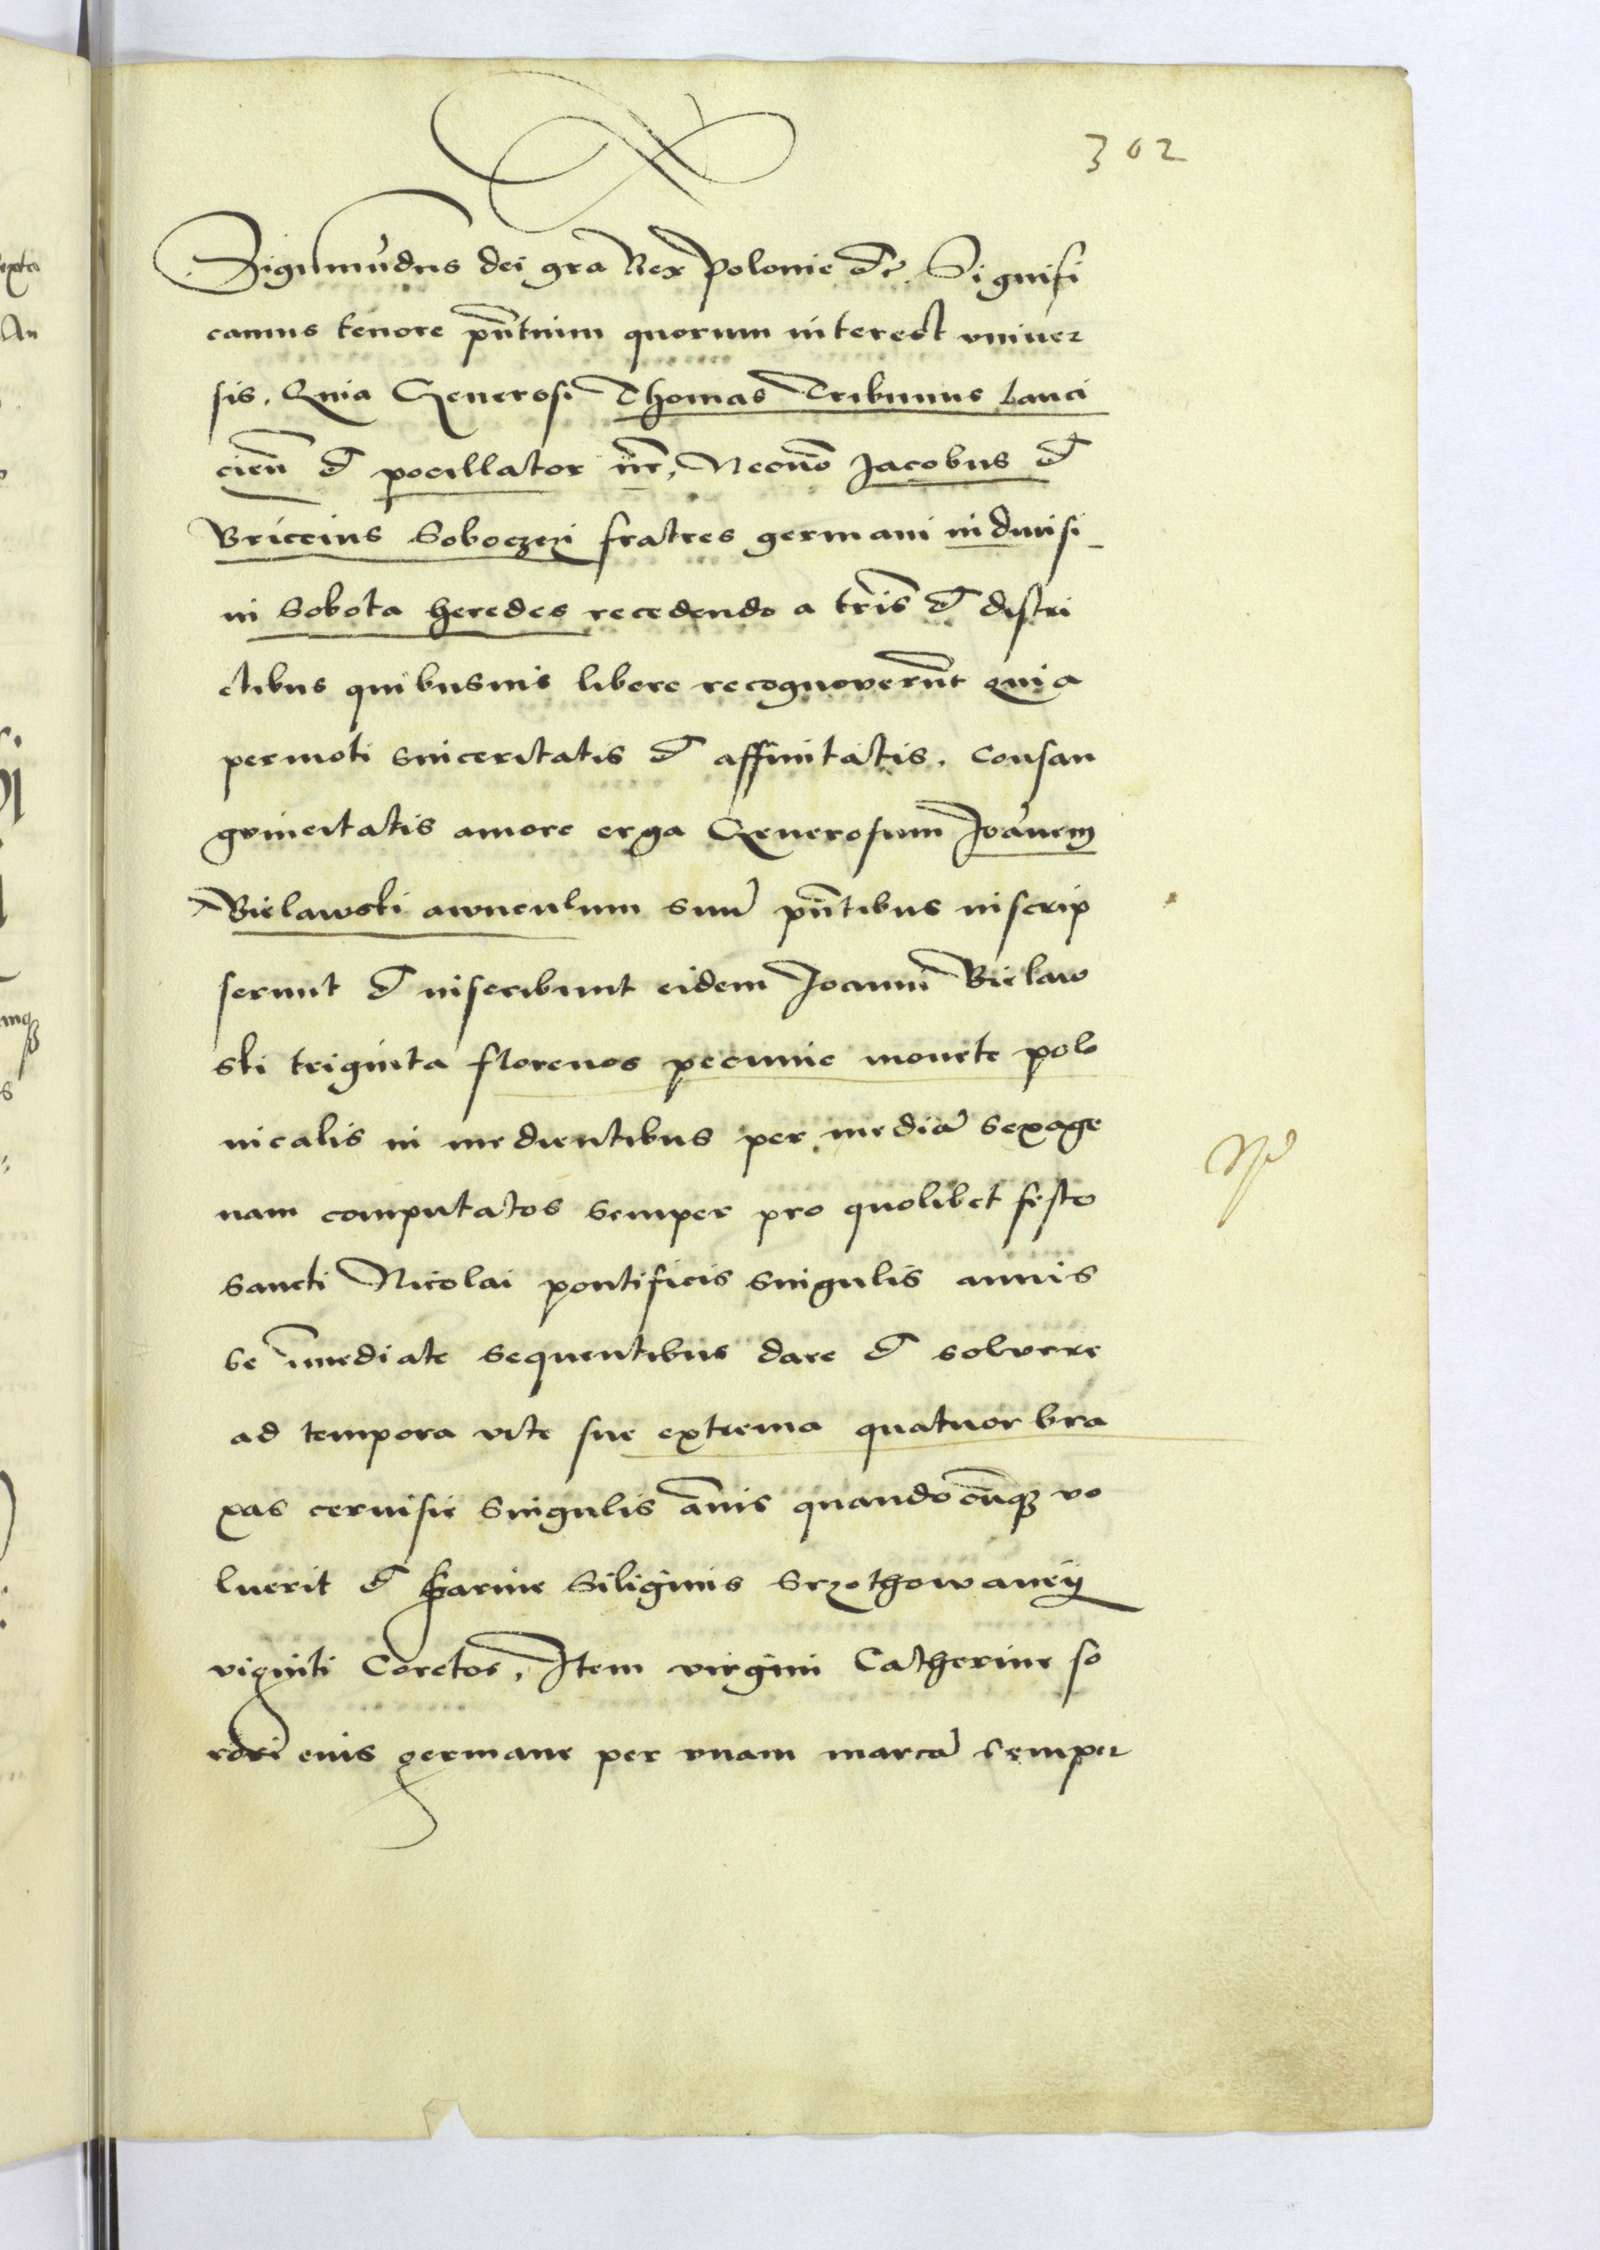 302
Sigismũdus dei gra Rex polonie etc. Signifi
camus tenore pñtium quorum interest vniuer
sis. Quia Generosi Thomas Tribunus Lanci
cieñ et pocillator nr̃, Necnõ Jacobus et
Briccius Soboczey fratres germani indiuisi
in Sobota heredes recedendo a tris̃ et distri
ctibus quibusuis libere recognouerũt quia
permoti sinceritatis et affinitatis. Consan
gvineitatis amore erga Generosum Joãnem
Bielawski awnculum suũ pñtibus inscrip
serunt et inscribunt eidem Joanni Bielaw
ski triginta florenos pecunie monete polo
nicalis in medientibus per mediã sexage
nam computatos semper pro quolibet festo
Sancti Nicolai pontificis singulis annis
se ĩmediate sequentibus dare et solvere
ad tempora vite sue extrema quatuor bra
xas ceruisie singulis ãnis quandocũq; vo
luerit et farine Siliginis Srzothowaneÿ
viginti Coretos, Item virgini Catherine so
rori eius germane per vnam marcã semper